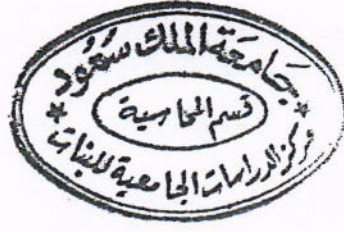 جَامعَة الملك سُعُود
قسم المحاسبة
مركز الدراسات الجامعية للبنات